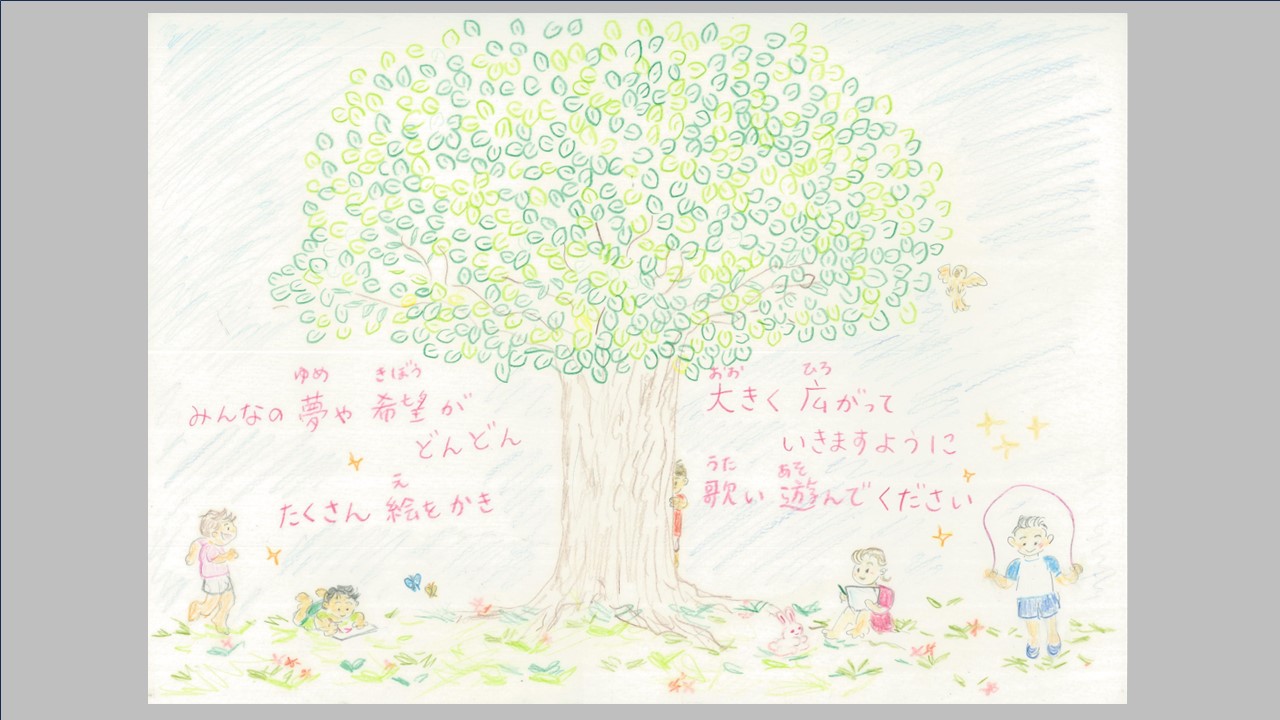 ゆめ きぼう
みんなの 夢や 希望が
どんどん
おお ひろ
大きく 広がって
いきますように
え
たくさん 絵をかき
うた あそ
歌い 遊んでください